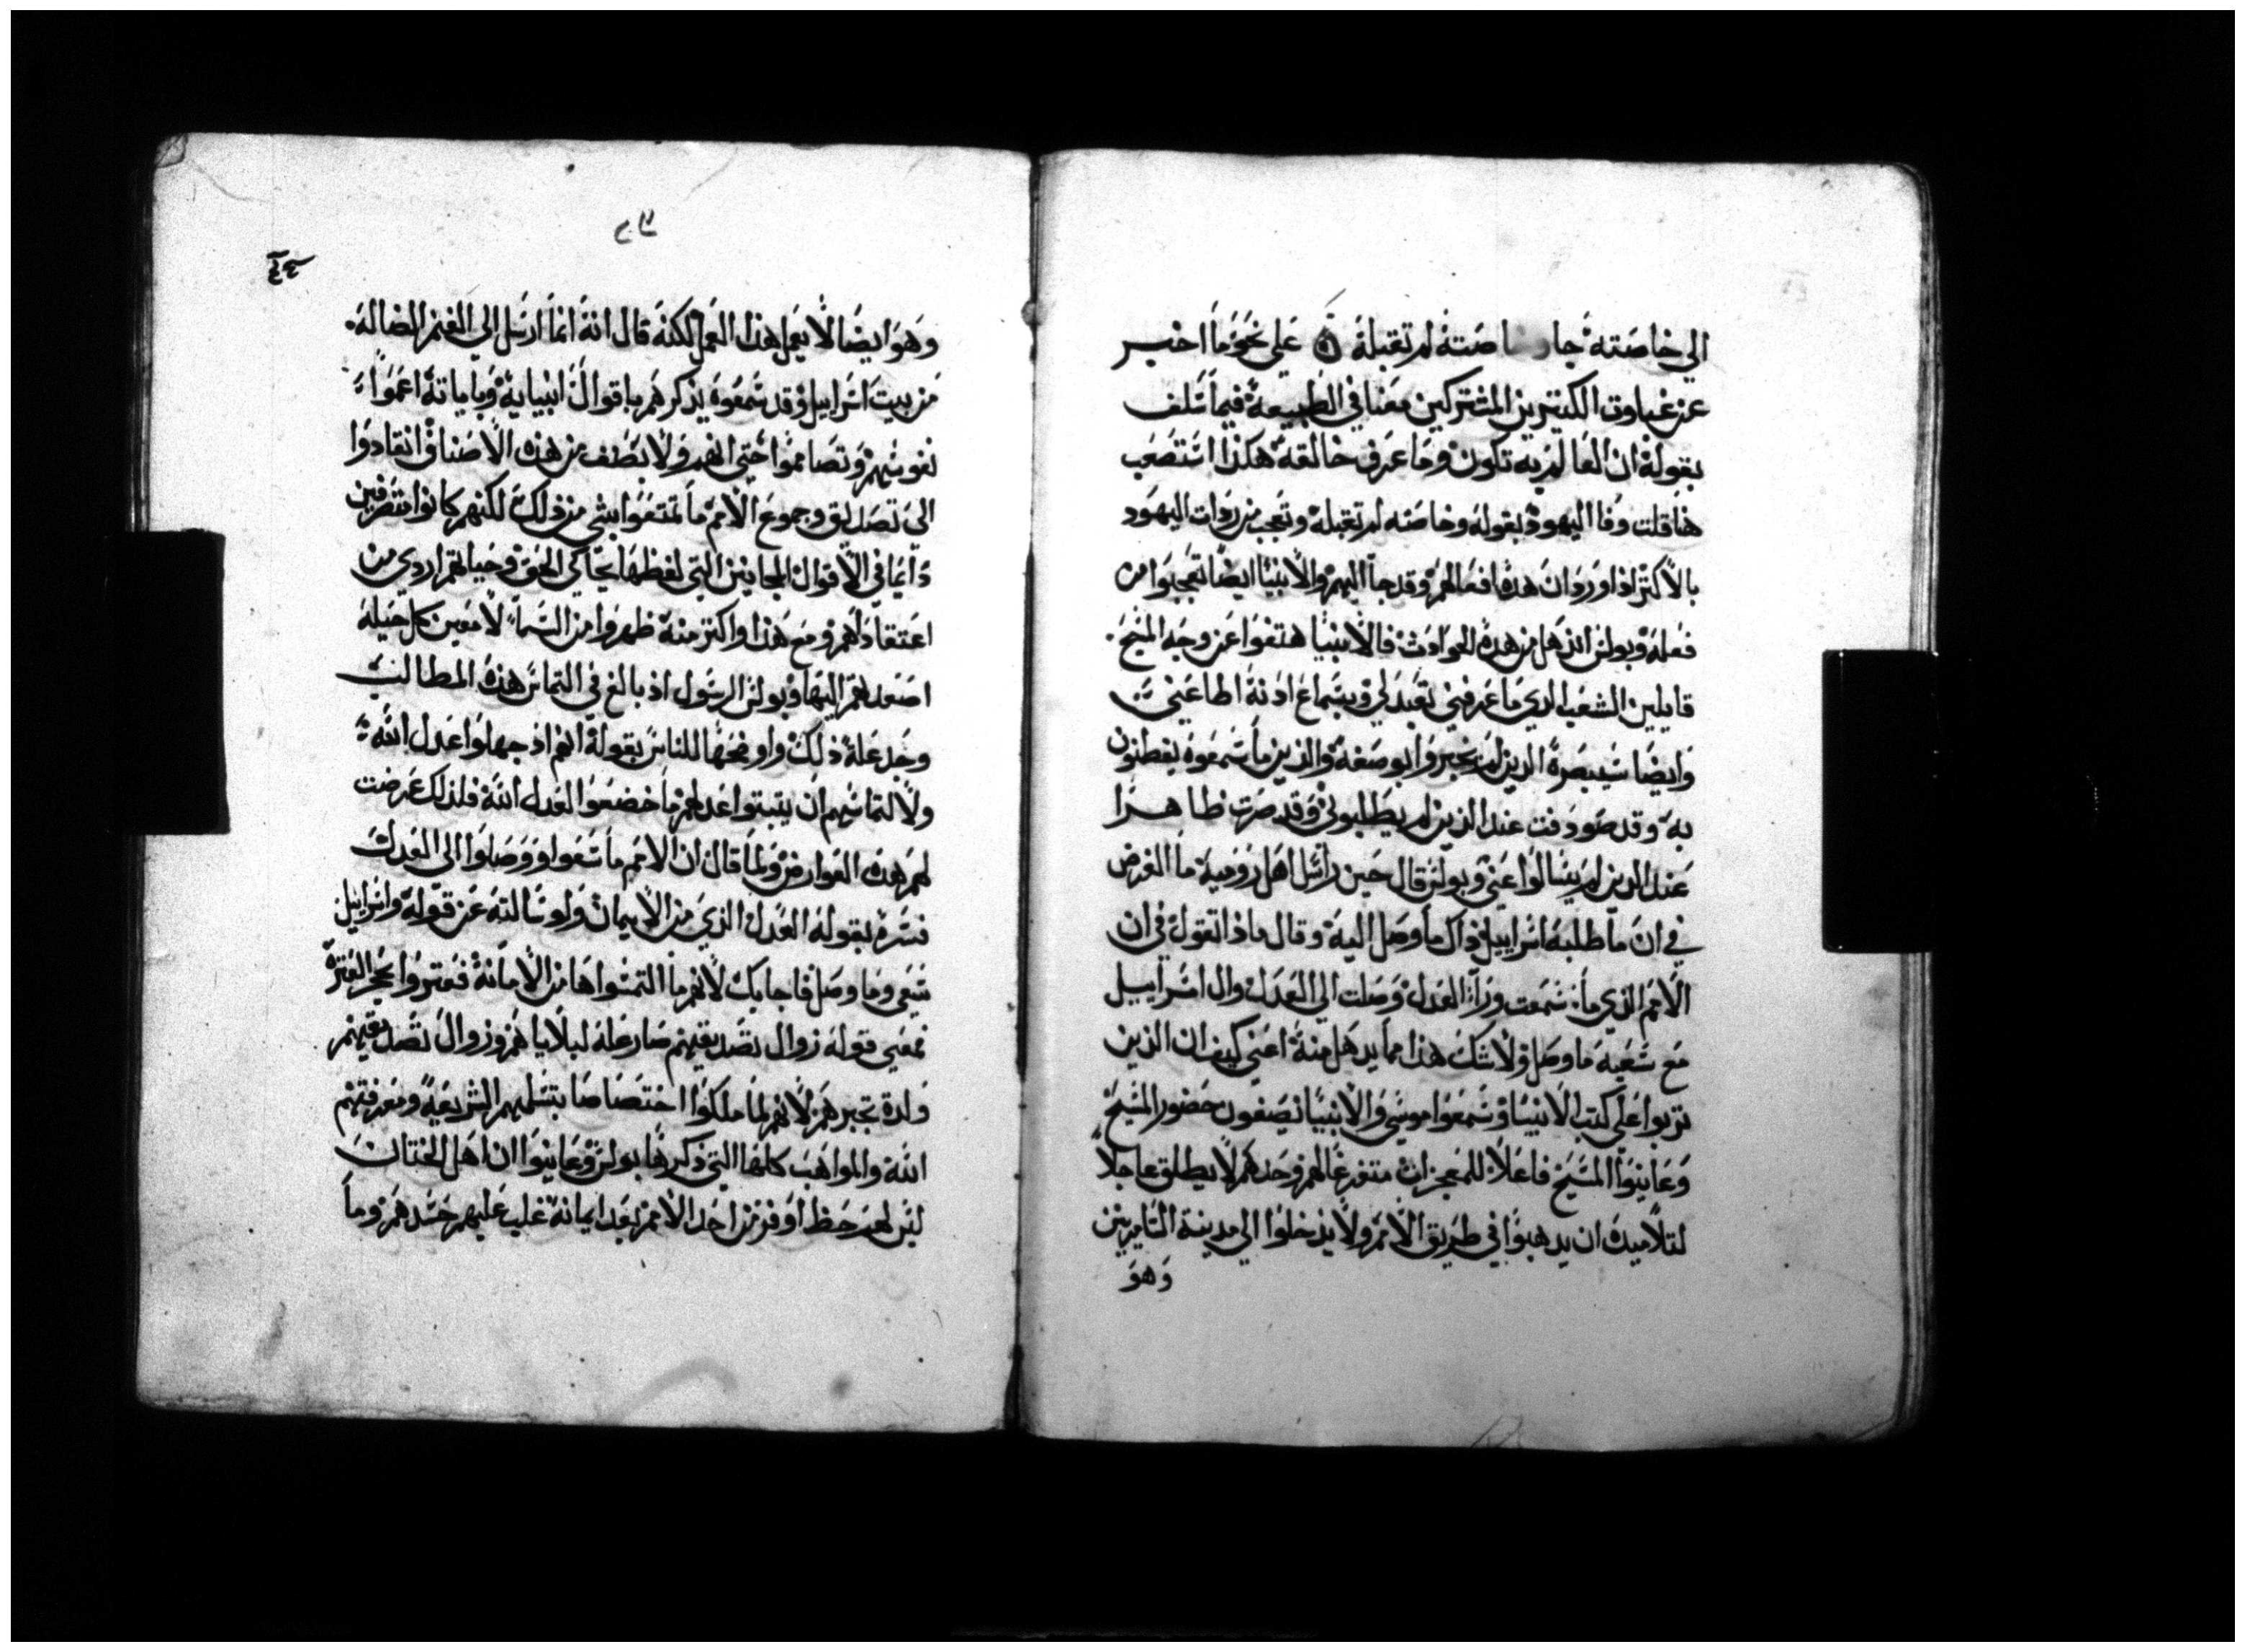 الي خاصته جا وخاصته لم تقبله ۞ علي نحو ما اخبر
عن غباوت الكتيرين المشتركين معنا في الطبيعه فيما سلف
بقوله ان العالم به تكون وما عرف خالقه هكذا استصعب
هنا قلت وفا اليهود بقوله وخاصته لم تقبله وتعجب من روات اليهود
بالاكتر اذ اورد ان هده افعالهم وقد جا اليهم والانبيا ايضا تعجبوا من
فعله وبولس اندهل من هده الحوادث فالانبيا هتفوا عن وجه المسيح
قايلين الشعب الدي ما عرفني تعبد لي وبسماع ادنه اطاعني
وايضا سيبصره الدين لم يخبروا بوصفه والذين ما سمعوه يفطنون
به وقد صودفت عند الذين لم يطلبوني وقد صرت ظاهرا
عند الدين لم يسالوا عني وبولس قال حين راسل اهل روميه ما الغرض
في ان ما طلبه اسراييل ذاك ما وصل اليه وقال ماذا نقول في ان
الامم الذي ما سمعت ورا العدل وصلت الي العدل وال اسراييل
مع سعيه ما وصل ولا شك هذا مما يدهل منه اعني كيف ان الذين
تربوا علي كتب الانبيا وسمعوا موسي والانبيا يصفون حضور المسيح
وعاينوا المسيح فاعلا للمعجزات متفرغا لهم وحدهم لا يطلق عاجلا
لتلاميده ان يدهبوا في طريق الامم ولا يدخلوا الي مدينة السامريين
وهو
وهو ايضا لا يعمل هذا العمل لكنه قال انه انما ارسل الي الغنم الضاله
من بيت اسراييل وقد سمعوه يذكرهم باقوال انبيايه وباياته اعموا
نفوسهم وتصاموا حتي انهم ولا بطف من هذه الاصناف انقادوا
الي تصديق وجموع الامم ما تمتعوا بشي من ذلك لكنهم كانوا متصرفين
دايما في الاقوال المجانين التي لفظها يحاكي الحق وحيالهم اردي من
اعتقادهم ومع هذا واكتر منه ظهروا من السما لامعين كل حيله
اصعدهم اليها وبولس الرسول اذ بالغ في التماس هذه المطالب
وجد علة ذلك واوضحها للناس بقوله انهم اذ جهلوا عدل الله
ولالتماسهم ان يتبتوا عدلهم ما خضعوا لعدل الله فلذلك عرضت
لهم هذه العوارض ولما قال ان الامم ما سعوا ووصلوا الي العدل
فسره بقوله العدل الذي من الايمان ولو سالته عن قوله واسراييل
سعي وما وصل فاجابك لانهم ما التمسوها من الامانه فعتروا بحجر العتره
فمعني قوله زوال تصديقهم صار علة لبلاياهم وزوال تصديقهم
ولده تجبرهم لانهم لما ملكوا اختصاصا بتسلمهم الشريعه ومعرفتهم
الله والمواهب كلها التي ذكرها بولس وعاينوا ان اهل الختان
ليس لهم حظ اوفر من احد الامم بعد ايمانه غلب عليهم حسدهم وما